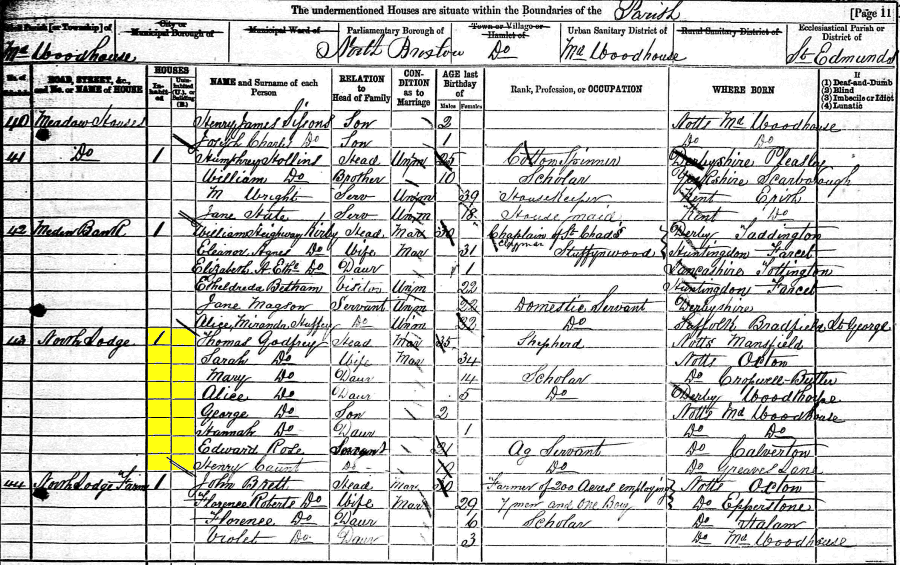 The undermentioned Houses are situate within the Boundaries of the Parish [Page 11
Civil Parish [or Township] of
City or Municipal Borough of
Municipal Ward of
Parliamentary Borough of
Town or Village or Hamlet of
Urban Sanitary District of
Rural Sanitary District of
Ecclesiastical Parish or District of
Md Woodhouse North Do Md Woodhouse St Edmunds
No. of Schedule
ROAD, STREET, &c., and No. or NAME of HOUSE
HOUSES
In-habited
Uninhabited (U.), or Building (B.)
NAME and Surname of each Person
RELATION to Head of Family
CONDITION as to Marriage
AGE last Birthday of
Males Females
Rank, Profession, or OCCUPATION
WHERE BORN
If
(1) Deaf-and-Dumb
(2) Blind
(3) Imbecile or Idiot
(4) Lunatic
40 Meadow House Henry James Sissons Son 2 Notts Md Woodhouse
Joseph Charles Do Son 1 Do Do
41 Do 1 Humphrey Hollins Head Unm 25 Cotton Spinner Derbyshire Pleasley
William Do Brother 10 Scholar Yorkshire Scarborough
M Wright Serv Unm 39 Housekeeper Kent Erith
Jane State Serv Unm 18 House maid Kent Do
42 Meden Bank 1 William Heighway Kirby Head Mar 30 Chaplain of St Chads Derby Taddington
Eleanor Agnes Do Wife Mar 31 Clergyman Stuffynwood Huntingdon Farcet
Elizabeth A. Eth. Do Daur 1 Lancashire Tottington
Etheldreda Betham Visitor Unm 22 Huntingdon Farcet
Jane Magson Servant Unm 22 Domestic Servant Derbyshire
Alice Miranda Do Unm 22 Do Suffolk Bradfield St George
43 North Lodge 1 Thomas Godfrey Head Mar 35 Shepherd Notts Mansfield
Sarah Do Wife Mar 34 Notts Oxton
Mary Do Daur 14 Scholar Do Cropwell-Butler
Alice Do Daur 5 Do Derby Woodthorpe
George Do Son 2 Notts Md Woodhouse
Hannah Do Daur 1 Do Do
Edward Rose Servant 21 Ag Servant Do Calverton
Henry Gaunt Do Do Do Greaves Lane
44 North Lodge Farm 1 John Brett Head Mar 30 Farmer of 200 Acres employing Notts Oxton
Florence Roberts Do Wife Mar 29 7 men and One Boy Do Epperstone
Florence Do Daur 6 Scholar Do Halam
Violet Do Daur 3 Do Md Woodhouse